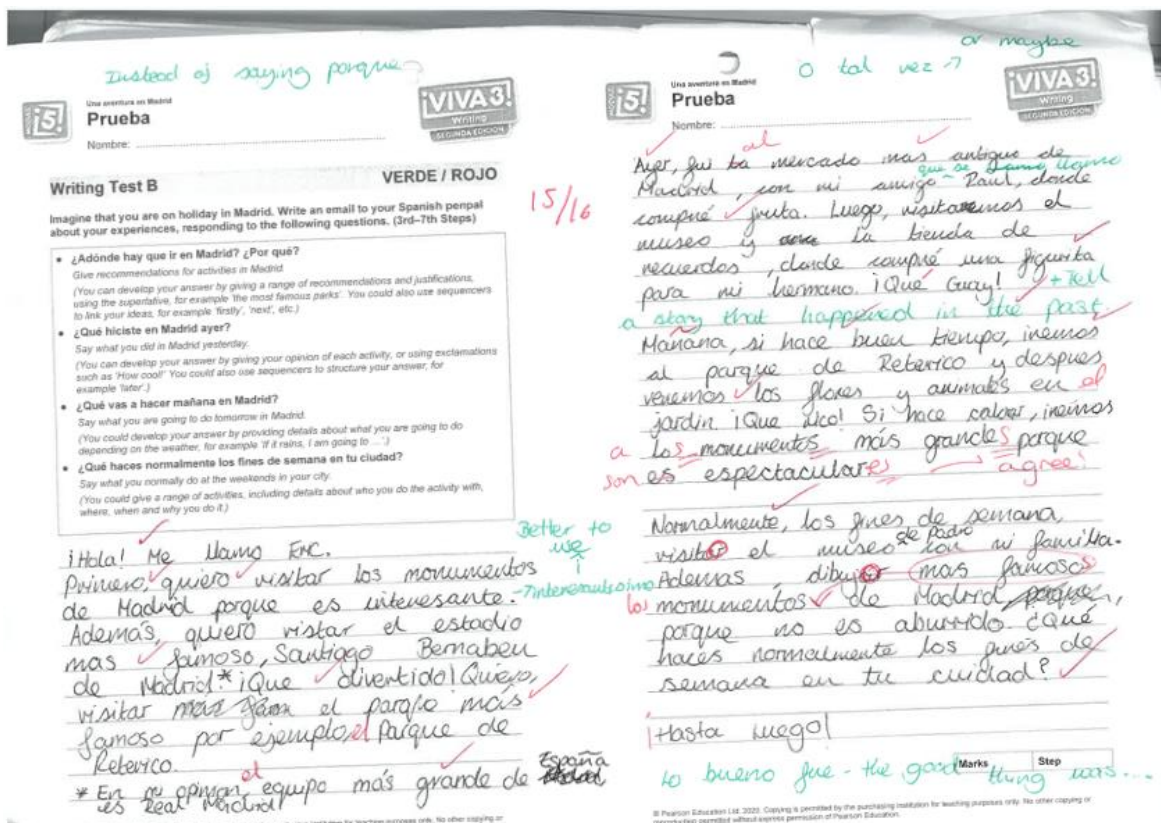 Instead of saying porque
¡5!
Una aventura en Madrid
Prueba
Nombre:
¡VIVA 3!
Writing
SEGUNDA EDICIÓN
Writing Test B
VERDE / ROJO
15/16
Imagine that you are on holiday in Madrid. Write an email to your Spanish penpal
about your experiences, responding to the following questions. (3rd–7th Steps)
• ¿Adónde hay que ir en Madrid? ¿Por qué?
Give recommendations for activities in Madrid.
(You can develop your answer by giving a range of recommendations and justifications,
using the superlative, for example 'the most famous parks'. You could also use sequencers
to link your ideas, for example 'firstly', 'next', etc.)
• ¿Qué hiciste en Madrid ayer?
Say what you did in Madrid yesterday.
(You can develop your answer by giving your opinion of each activity, or using exclamations
such as 'How cool!' You could also use sequencers to structure your answer, for
example 'later'.)
• ¿Qué vas a hacer mañana en Madrid?
Say what you are going to do tomorrow in Madrid.
(You could develop your answer by providing details about what you are going to do
depending on the weather, for example 'If it rains, I am going to …'.)
• ¿Qué haces normalmente los fines de semana en tu ciudad?
Say what you normally do at the weekends in your city.
(You could give a range of activities, including details about who you do the activity with,
where, when and why you do it.)
¡Hola! Me llamo Eric.
Primero, quiero visitar los monumentos
de Madrid porque es interesante.
Better to
use
interesantísimo
Además, quiero vistar el estadio
mas famoso, Santiago Bernabeu
de Madrid.* ¡Que divertido! Quiero,
visitar el parque más
famoso por ejemplo, el Parque de
Reterico.
* En mi opinian, el equipo más grande de España
es Real Madrid!
or maybe
O tal vez
¡5!
Una aventura en Madrid
Prueba
Nombre:
¡VIVA 3!
Writing
SEGUNDA EDICIÓN
al
Ayer, fui mercado mas antiguo de
que se llama
Madrid, con mi amigo Raul, donde
compré fruta. Luego, visitaremos el
museo y la tienda de
recuerdos, donde compré una figurita
para mi hermano. ¡Qué Guay! + Tell
a story that happened in the past.
Mañana, si hace buen tiempo, iremos
al parque de Reterico y despues
veremos los flores y animales en el
jardin. ¡Que rico! Si hace calor, iremos
a los monumentos más grandes porque
son es espectaculares agree!
Normalmente, los fines de semana,
visito el museo de Padro con mi familia.
Ademas, dibujo mas famosos
los monumentos de Madrid,
porque no es aburrido. ¿Qué
haces normalmente los fines de
semana en tu cuidad?
¡Hasta luego!
Marks
Step
Lo bueno fue - the good thing was...
© Pearson Education Ltd 2020. Copying is permitted by the purchasing institution for teaching purposes only. No other copying or
reproduction permitted without express permission of Pearson Education.